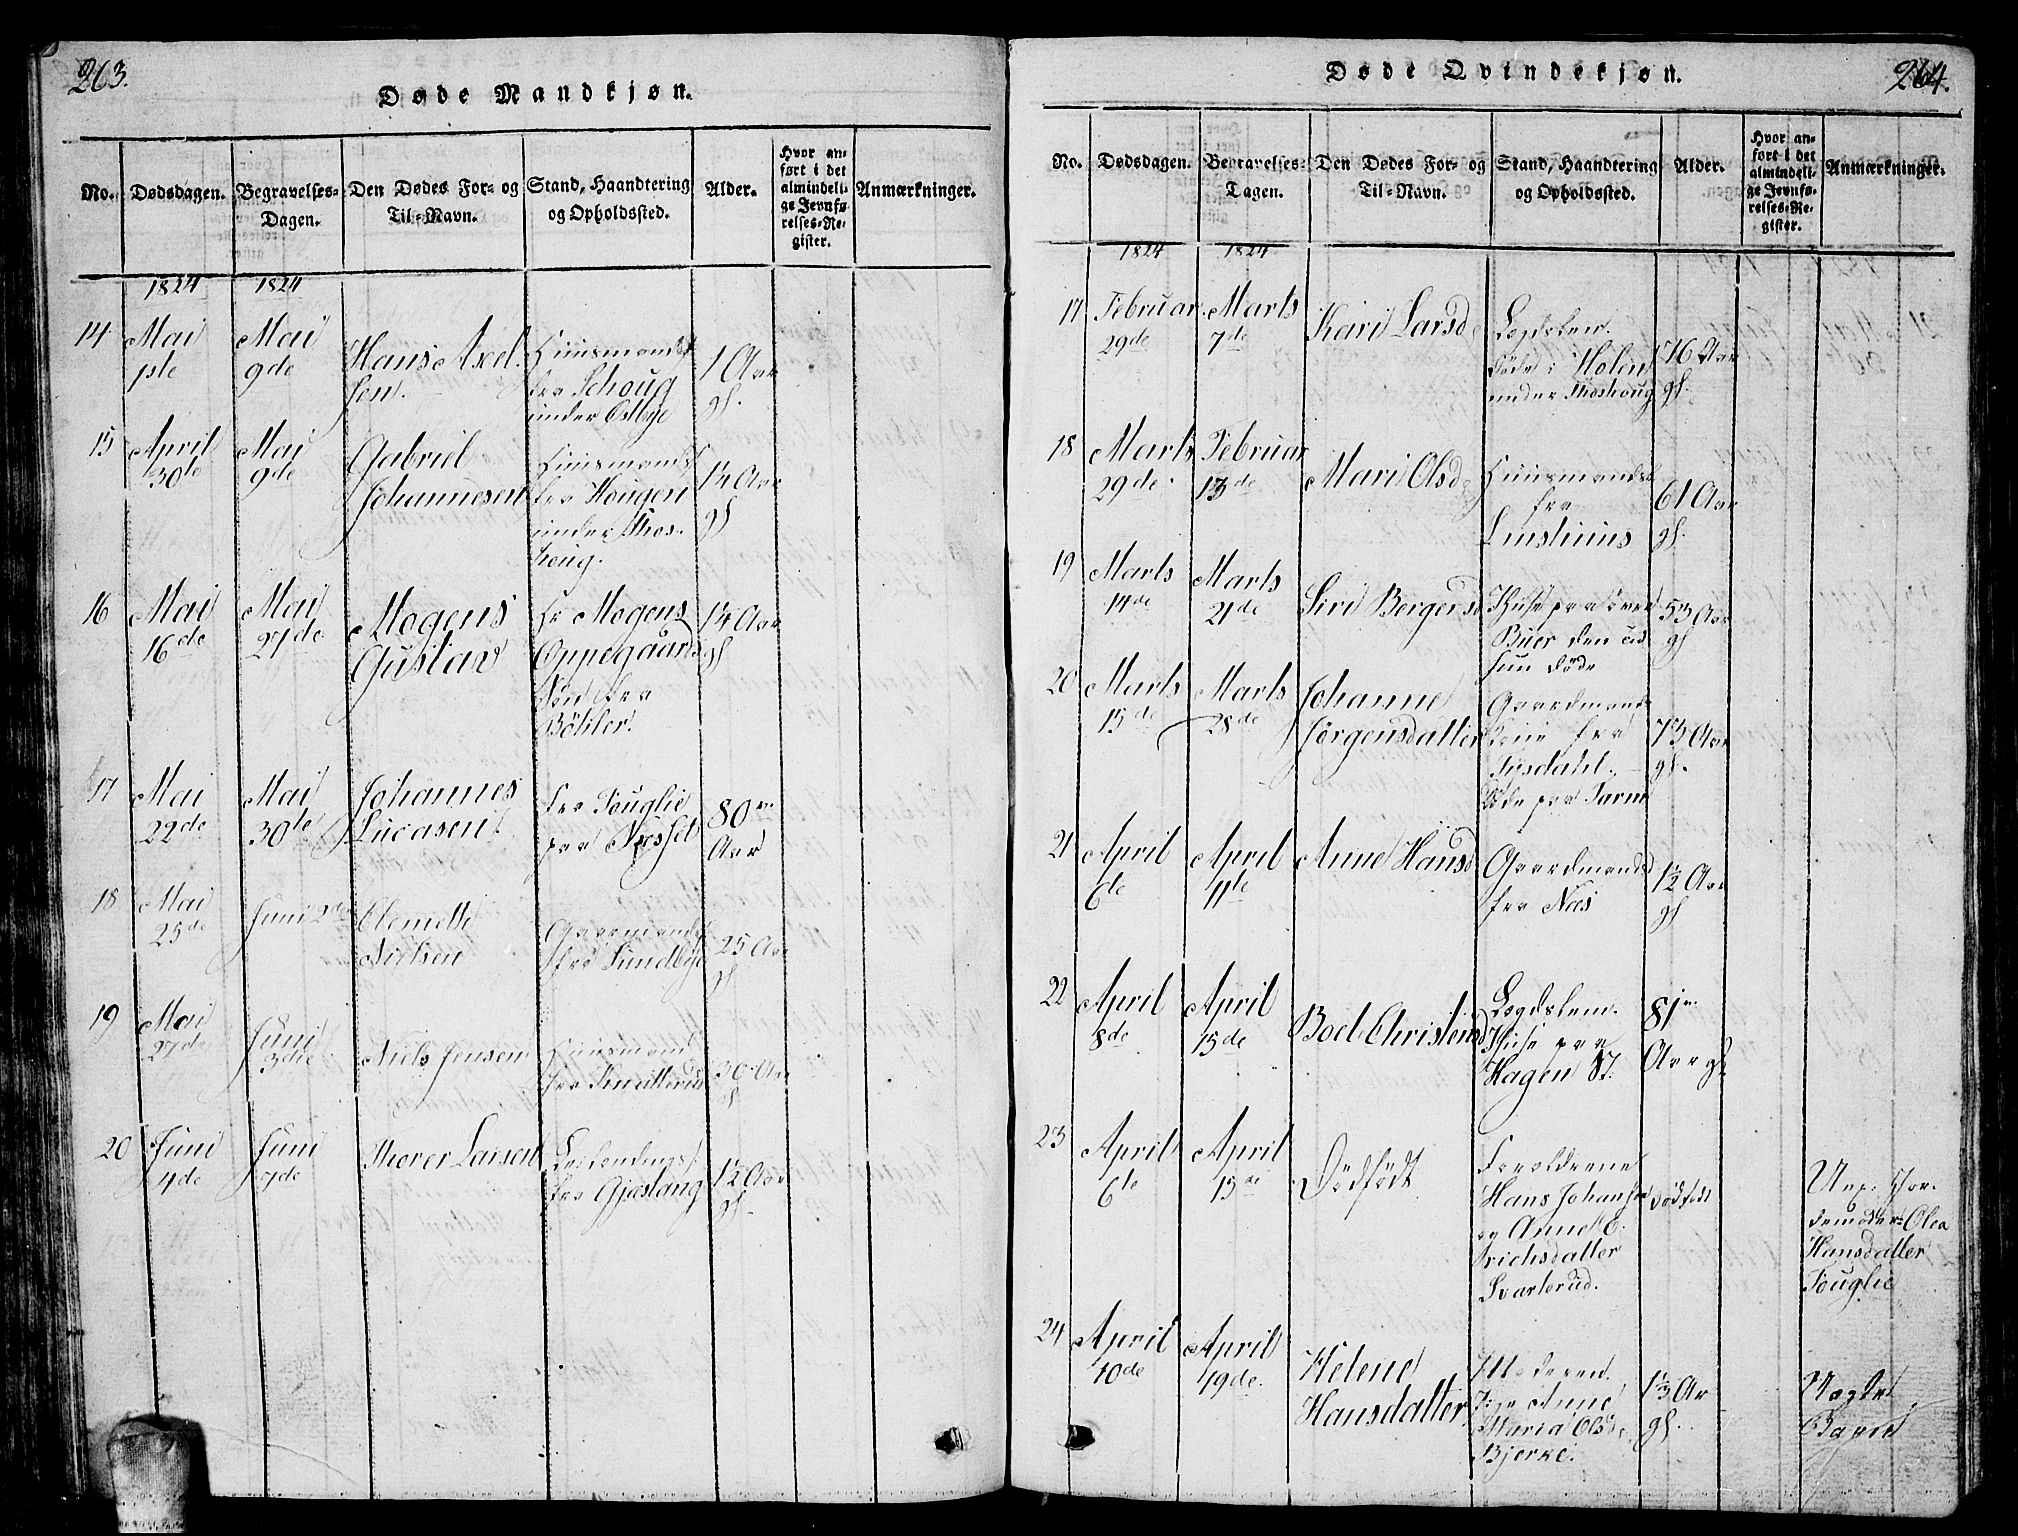 263.
Døde Mandkjøn.
No.
Dødsdagen.
Begravelses-
Dagen.
Den Dødes For- og
Til-Navn.
Stand, Haandtering
og Opholdssted.
Alder.
Hvor an-
ført i det
almindeli-
ge Jevnfø-
relses-Re-
gister.
Anmærkninger.
1824
1824
14
Mai
1ste
Mai
9de
Hans Axel
sen.
Huusmands
fra Schoug
under Ostbye
1 Aar
gl.
15
April
30te
Mai
9de
Gabriel
Johannesen
Huusmands
fra Hougen
under Thos-
houg.
14 Aar
gl
16
Mai
16de
Mai
27de
Mogens
Gustav
Hr Mogens
Oppegaards
Søn fra
Böhler.
14 Aar
gl
17
Mai
22de
Mai
30te
Johannes
Lucasen
fra Fouglie
paa Næsset
80
Aar
18
Mai
25de
Juni 2de
Clemett
Nielsen
Gaardmands
fra Sundbye
25 Aar
gl
19
Mai
27de
Juni
3die
Niels Jensen
Huusmand
fra Knatterud
30 Aar
gl
20
Juni
4de
Juni
7de
Thorer Larsen
fra Gjæslang
1½ Aar
gl.
264.
Døde Qvindekjøn.
No.
Dødsdagen.
Begravelses-
Dagen.
Den Dødes For- og
Til-Navn.
Stand, Haandtering
og Opholdssted.
Alder.
Hvor an-
ført i det
almindeli-
ge Jevnfø-
relses-Re-
gister.
Anmærkninger.
1824
1824
17
Februar
29de
Marts
7de
Kari Larsd
Legdslem.
døde i Holen
under Thoshoug
76 Aar
gl.
18
Marts
29de
Februar
13de
Mari Olsd
Huusmands
fra
Linshuus
61 Aar
gl.
19
Marts
14de
Marts
21de
Siri Bergersd
Huse paa över
Buer den
hun döde
53 Aar
gl
20
Marts
15de
Marts
28de
Johanne
Jörgensdatter
Gaardmands
Kone fra
Tusdahl.
döde paa Tarm
73 Aar
gl.
21
April
6de
April
11te
Anne Hansd
Gaardmands
fra Næs
1½ Aar
gl
22
April
8de
April
15de
Boel Christensd
Legdslem.
Huse paa
Hagen St.
81
Aar gl
23
April
6te
April
15de
Dödfödt
Forældrene
Hans Johansen
og Anne E.
richsdatter
Svarterud.
dödfödt
Jor-
demoder Olea
Hansdatter
Fouglie
24
April
10de
April
19de
Helene
Hansdatter
Moderen
Pige Anne
Maria Olsd.
Bjerke.
1⅓ Ar
gl.
Uægte
Barn